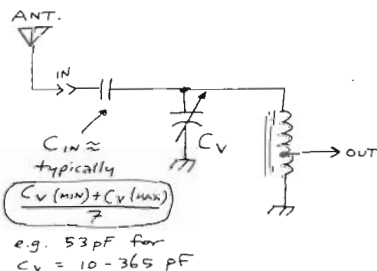 ANT.
IN
C IN ≈
typically
Cv (MIN) + Cv (MAX)
7
e.g. 53 pF for
Cv = 10 - 365 pF
Cv
OUT